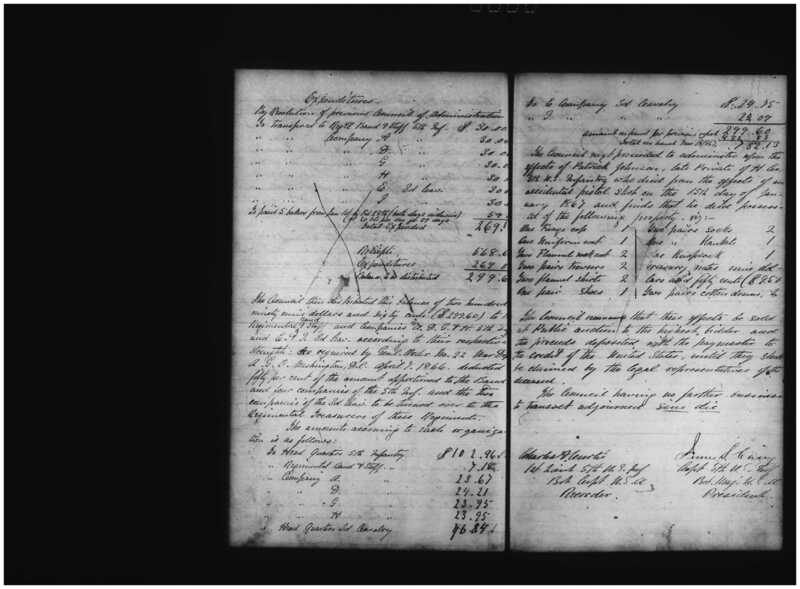 Expenditures.
By Resolution of previous Council of Administration
To Transfers to Regtl Band & Staff 5th Inf. $ 30.00
" " Company A " 30.0
" " " D " 30.0
" " " G " 30.0
" " " H " 30.
" " " E 3d Cav. 30
" " " I " 30
Total Expended 269.
Receipts 568.
Expenditures 269.
Balance distributed 299.6
The Council then distributed this balance of two hundred
ninety nine dollars and sixty cents ($299.60) to
Regimental Band & Staff and Companies A. D. G. & H. 5th Inf
and E. & I. 3d Cav. according to their respective
strength: As required by Genl. Orders No. 22 War Dep
A. G. O. Washington, D.C. April 7. 1866. deducted
fifty per cent of the amount apportioned to the Band
and four companies of the 5th Inf. and the two
companies of the 3d Cav. to be turned over to the
Regimental Treasurers of these Regiments.
The amounts accruing to each organiza-
tion is as follows:
To Head Quarters 5th Infantry $102.96
" Regimental Band & Staff " 7.18
" Company A. " 23.67
" " D. " 24.21
" " G. " 23.95
" " H " 23.95
" Head Quarters 3d Cavalry 46.84
To E Company 3d Cavalry $.24.75
" I " " " 22.09
299.60
The Council next proceeded to administer upon the
effects of Patrick Johnson, late Private of H Co.
5th U.S. Infantry who died from the effects of an
accidental pistol shot on the 15th day of Jan-
uary 1867 and finds that he died possess-
ed of the following property. viz:-
One Forage cap 1 Two pairs socks 2
One Uniform coat 1 One " Blanket 1
Two Flannel sack coats 2 One Knapsack 1
Two pairs trowsers 2 Treasury notes nine dol-
Two flannel shirts 2 lars and fifty cents ($9.50
One pair shoes 1 Two pairs cotton drawers, 2
The Council recommend that these effects be sold
at Public auction to the highest bidder and
the proceeds deposited with the paymaster to
the credit of the United States, until they shall
be claimed by the legal representatives of the
deceased.
The Council having no further business
to transact adjourned sine die
Charles A. Curtis
1st Lieut 5th U.S. Inf
Bvt. Capt U.S.A
Recorder.
Capt 5th U.S. Inf
Bvt. Maj. U.S.A
President.